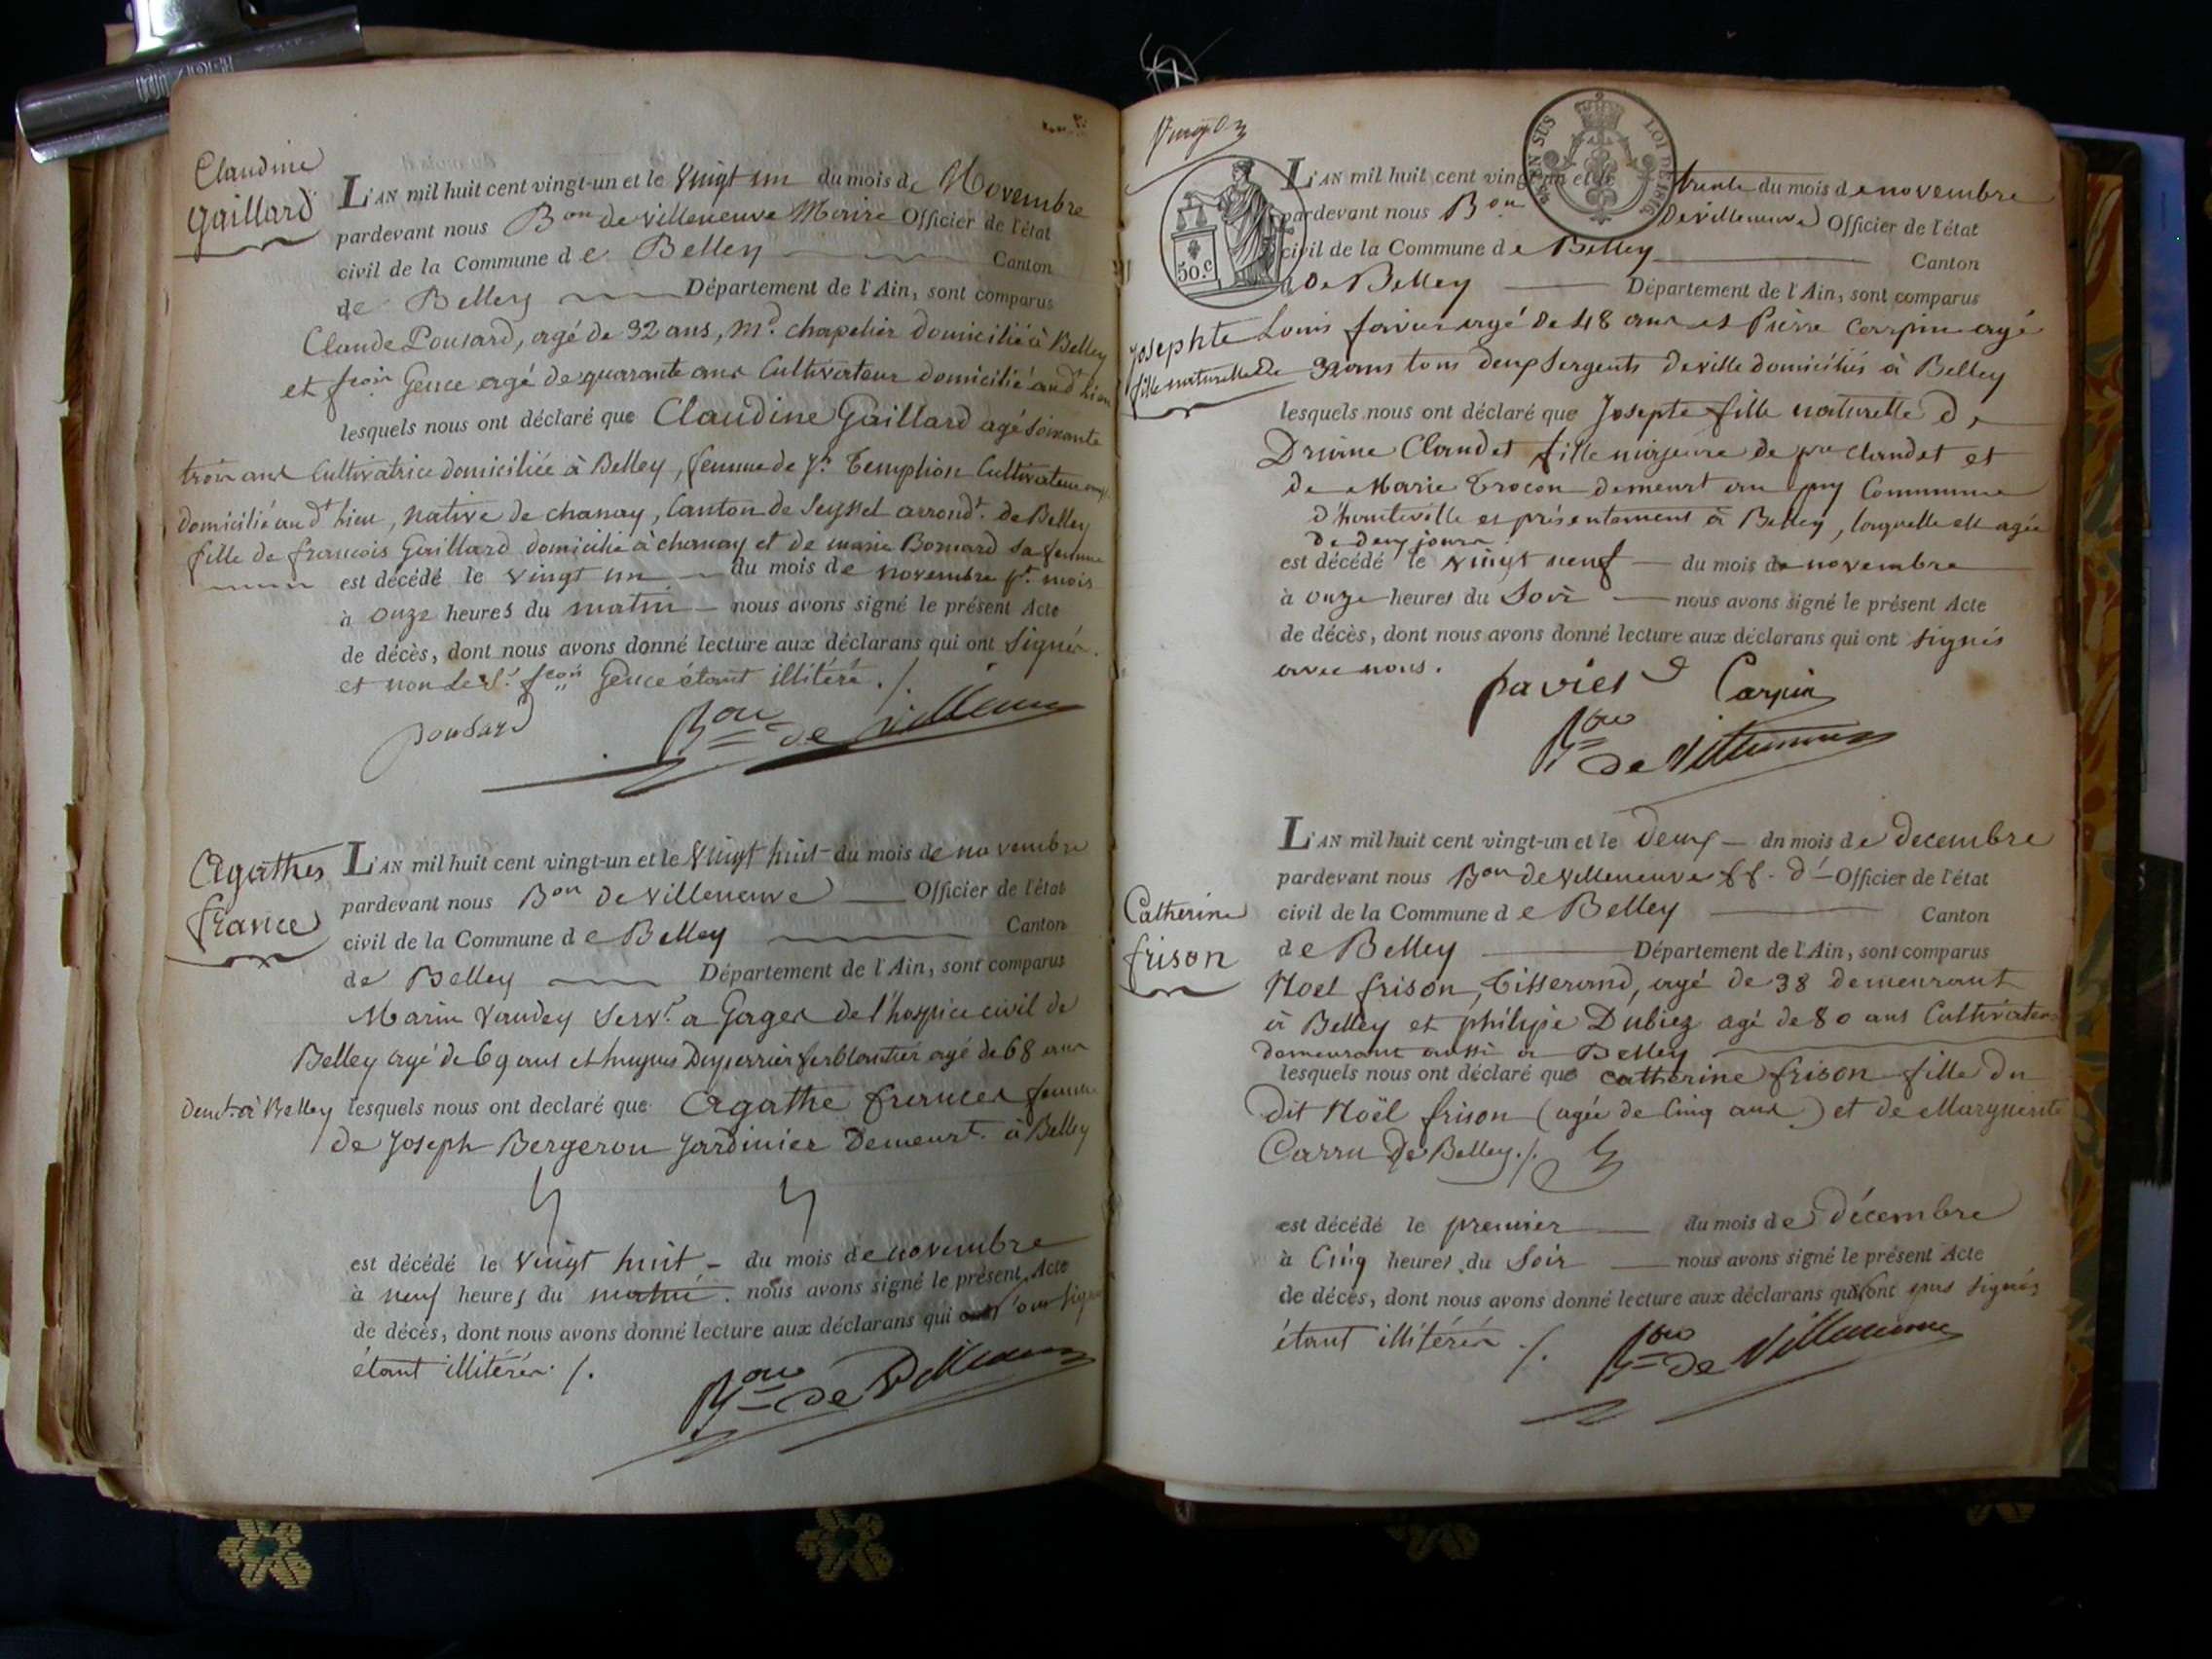 Claudine
Gaillard
L'AN mil huit cent vingt-un et le Vingt un du mois de Novembre
pardevant nous Bon de villeneuve Maire Officier de l'état
civil de la Commune de Belley Canton
de Belley Département de l'Ain, sont comparus
Claude Pousard, agé de 32 ans, Md. chapelier domicilié à Belley
et fçois Gence agé de quarante ans Cultivateur domicilié audt lieu
lesquels nous ont déclaré que Claudine Gaillard agé soixante
trois ans Cultivatrice domiciliée à Belley, femme de Jh Temphion Cultivateur
domicilié audt lieu, native de chanay, Canton de Seyssel arrondt. de Belley
fille de françois Gaillard domicilié à chanay et de marie Bornard sa femme
est décédé le vingt un du mois de novembre pt. mois
à onze heures du matin nous avons signé le présent Acte
de décès, dont nous avons donné lecture aux déclarans qui ont Signés.
et non le Sr. fçois Gence étant illitéré ./.
pousard Bon de Villeneuve
Agathes
france
L'AN mil huit cent vingt-un et le Vingt huit du mois de novembre
pardevant nous Bon de villeneuve Officier de l'état
civil de la Commune de Belley Canton
de Belley Département de l'Ain, sont comparus
Marin Vaudey Servt. a Gages de l'hospice civil de
Belley agé de 69 ans et hugues Duperrier ferblantier agé de 68 ans
demt. à Belley lesquels nous ont declaré que Agathe frances femme
de Joseph Bergeron Jardinier Demeurt. à Belley
est décédé le vingt huit du mois de novembre
à neuf heures du matin. nous avons signé le présent Acte
de décès, dont nous avons donné lecture aux déclarans qui n'ont signé
étant illitérés ./.
Bon de Villeneuve
L'AN mil huit cent vingt-un et le trente du mois de novembre
pardevant nous Bon De villeneuve Officier de l'état
civil de la Commune de Belley Canton
de Belley Département de l'Ain, sont comparus
50.c
LOI DE 1816
EN SUS
Josephte
fille naturelle de
Louis favier agé de 48 ans et Pierre Carpin agé
32 ans tous deux Sergents de ville domiciliés à Belley
lesquels nous ont déclaré que Josepte fille naturelle de
Claudet fille majeure de pre claudet et
de Marie Trocon demeurt au puy Commune
d'hauteville et présentement à Belley, laquelle est agée
de deux jours
est décédé le vingt neuf du mois de novembre
à onze heures du Soir nous avons signé le présent Acte
de décès, dont nous avons donné lecture aux déclarans qui ont signés
avec nous.
favier Carpin
Bon de Villeneuve
Catherine
frison
L'AN mil huit cent vingt-un et le deux du mois de decembre
pardevant nous Bon de villeneuve ff. d' Officier de l'état
civil de la Commune de Belley Canton
de Belley Département de l'Ain, sont comparus
Noel frison, Tisserand, agé de 38 demeurant
à Belley et philipe Dubiez agé de 80 ans Cultivateur
demeurant aussi à Belley
lesquels nous ont déclaré que catherine frison fille du
dit Noël frison (agée de Cinq ans) et de Marguerite
Carru De Belley ./.
est décédé le premier du mois de décembre
à Cinq heures du Soir nous avons signé le présent Acte
de décès, dont nous avons donné lecture aux déclarans qui n'ont pas signés
étant illitérés ./. Bon de Villeneuve